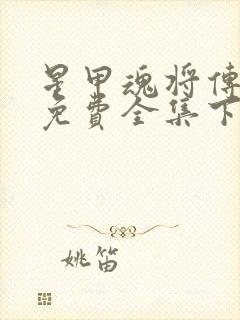 星甲魂将傳
免費全集下
姚笛